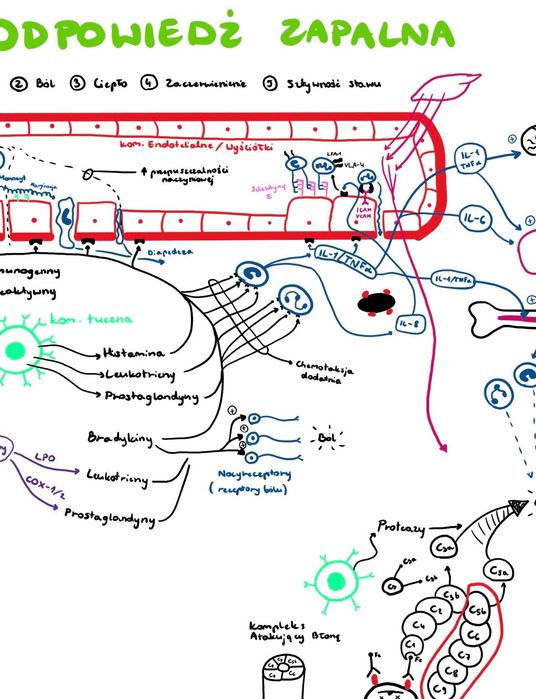 ODPOWIEDŹ ZAPALNA
② Ból ③ Ciepło ④ Zaczerwienienie ⑤ Sztywność stawu
kom. Endotelialne / Wyściółki
↑ przepuszczalności
naczyniowej
Selektyny
E
LFA-1
VLA-4
ICAM
VCAM
Monocyt
Marginacja
Diapedeza
IL-1/TNFα
IL-1
TNFα
IL-6
IL-1/TNFα
IL-8
kom. tuczna
Histamina
Leukotrieny
Prostaglandyny
Chemotaksja
dodatnia
Bradykiny
Ból
Nocyreceptory
(receptory bólu)
LPO
COX-1/2
Leukotrieny
Prostaglandyny
Proteazy
C3a
C5a
C3a
C3
C3b
C3b
C2
C4
C1
Fc
Fc
C5b
C6
C7
C8
C9
Kompleks
Atakujący Błonę